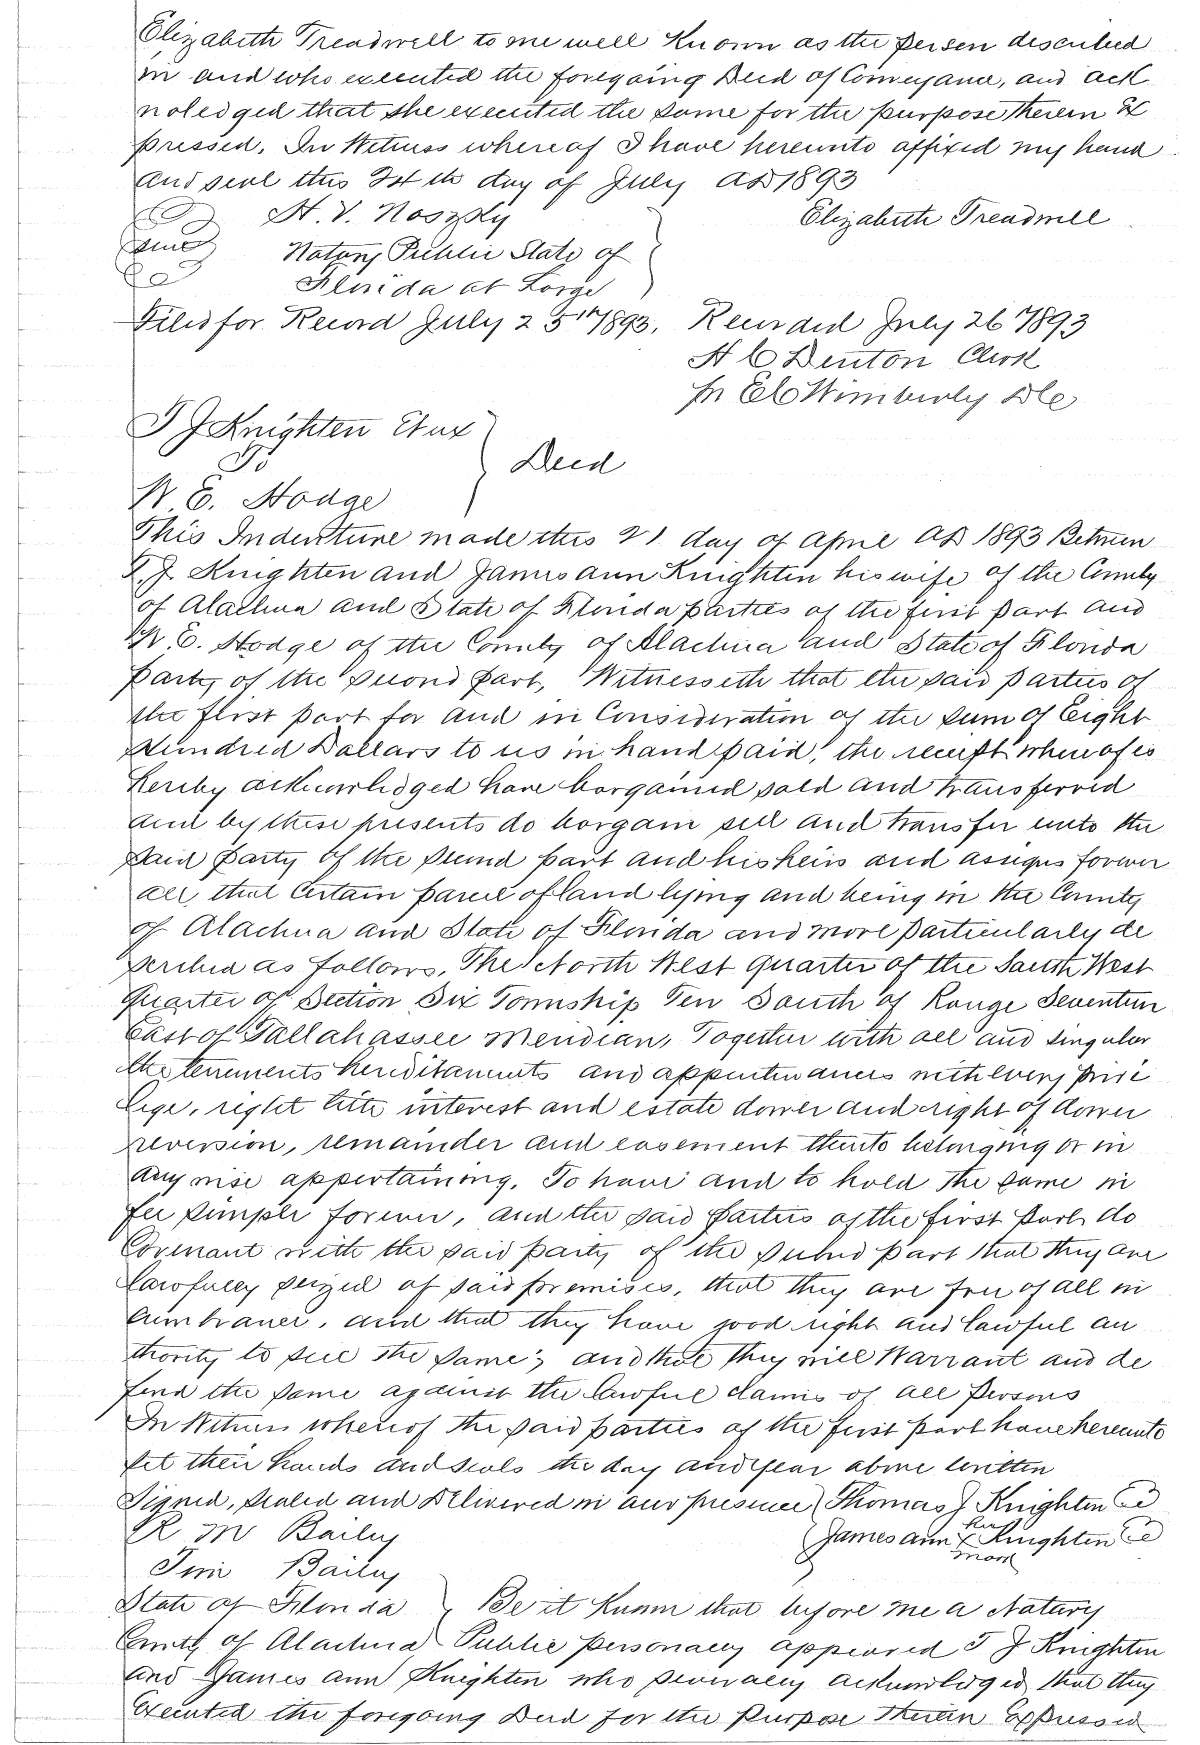 Elizabeth Treadwell to me well Known as the person described
in and who executed the foregoing Deed of Conveyance, and ack
noledged that she executed the same for the purpose therein Ex
pressed. In Witness whereof I have hereunto affixed my hand
and seal this 24th day of July AD 1893
H. V. Elizabeth Treadwell
Notary Public State of
Florida at Large
Filed for Record July 25th 1893, Recorded July 26 1893
H C Denton Clerk
Pr E C Wimberly D C
T J Knighten Et ux
To
W. E. Hodge
Deed
This Indenture made this 21 day of April AD 1893 Between
T. J. Knighten and James ann Knighten his wife of the County
of Alachua and State of Florida parties of the first part and
W. E. Hodge of the County of Alachua and State of Florida
Party of the second part, Witnesseth that the said parties of
the first part for and in Consideration of the sum of Eight
Hundred Dollars to us in hand paid, the receipt whereof is
hereby acknowledged have bargained sold and transferred
and by these presents do bargain sell and transfer unto the
said party of the second part and his heirs and assigns forever
all that certain parcel of land lying and being in the County
of Alachua and State of Florida and more particularly de
scribed as follows, The North West quarter of the South West
quarter of Section Six Township Ten South of Range Seventeen
East of Tallahassee Meridian, Together with all and singular
the tenements hereditaments and appurtenances with every privi
lige, right title interest and estate dower and right of dower
reversion, remainder and easement thereto belonging or in
any wise appertaining, To have and to hold the same in
fee simple forever, and the said parties of the first part do
Covenant with the said party of the second part that they are
lawfully seized of said premises, that they are free of all in
cumbrances, and that they have good right and lawful au
thority to sell the same; and that they will Warrant and de
fend the same against the lawful claims of all persons
In Witness whereof the said parties of the first part have hereunto
set their hands and seals the day and year above written
Signed, sealed and Delivered in our presence Thomas J Knighten
R M Bailey James ann her X mark Knighten
Tim Bailey
State of Florida Be it Known that before me a Notary
County of Alachua Public personally appeared T J Knighten
and James ann Knighten who severally acknowledged that they
Executed the foregoing Deed for the Purpose Therein Expressed